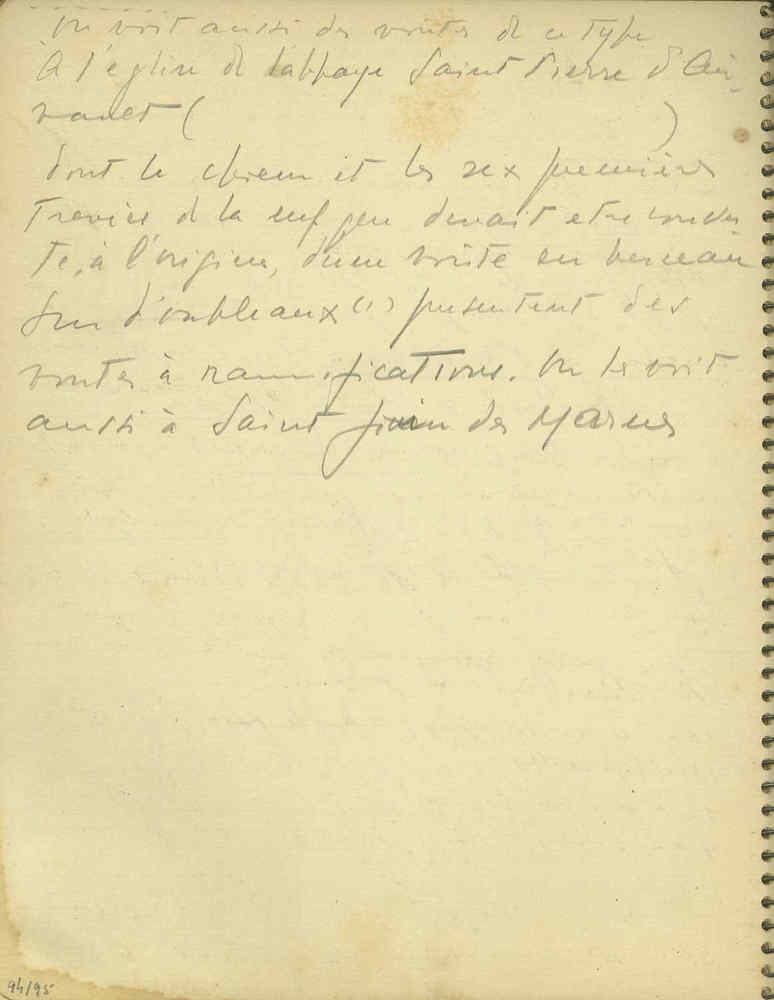 On voit aussi des voutes de ce type
à l'église de l'abbaye Saint Pierre d'Air-
vault (                    )
dont le choeur et les six premières
travées de la nef qui devait etre couver
te, à l'origine, d'une voûte en berceau
sur doubleaux (1) présentent des
voutes à ramifications. On les voit
aussi à Saint Jouin des Marnes
94/95